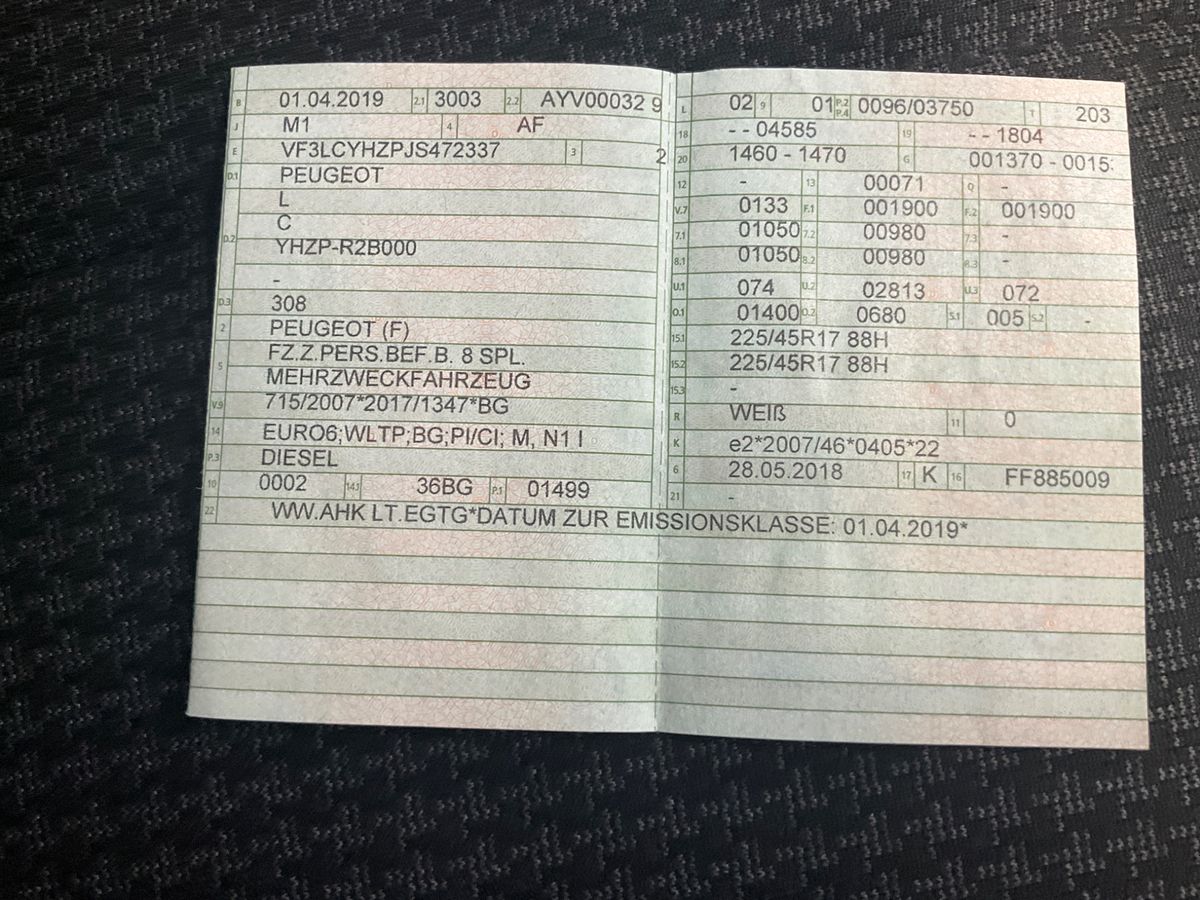 B 01.04.2019 2.1 3003 2.2 AYV00032 9
J M1 4 AF
E VF3LCYHZPJS472337 3 2
D.1 PEUGEOT
L
C
D.2 YHZP-R2B000
-
D.3 308
2 PEUGEOT (F)
5 FZ.Z.PERS.BEF.B. 8 SPL.
MEHRZWECKFAHRZEUG
V.9 715/2007*2017/1347*BG
14 EURO6;WLTP;BG;PI/CI; M, N1 I
P.3 DIESEL
10 0002 14.1 36BG P.1 01499
22 WW.AHK LT.EGTG*DATUM ZUR EMISSIONSKLASSE: 01.04.2019*
L 02 9 01 P.2 P.4 0096/03750 T 203
18 - - 04585 19 - - 1804
20 1460 - 1470 G 001370 - 0015
12 - 13 00071 Q -
V.7 0133 F.1 001900 F.2 001900
7.1 01050 7.2 00980 7.3 -
8.1 01050 8.2 00980 8.3 -
U.1 074 U.2 02813 U.3 072
O.1 01400 O.2 0680 S.1 005 S.2 -
15.1 225/45R17 88H
15.2 225/45R17 88H
15.3 -
R WEIß 11 0
K e2*2007/46*0405*22
6 28.05.2018 17 K 16 FF885009
21 -